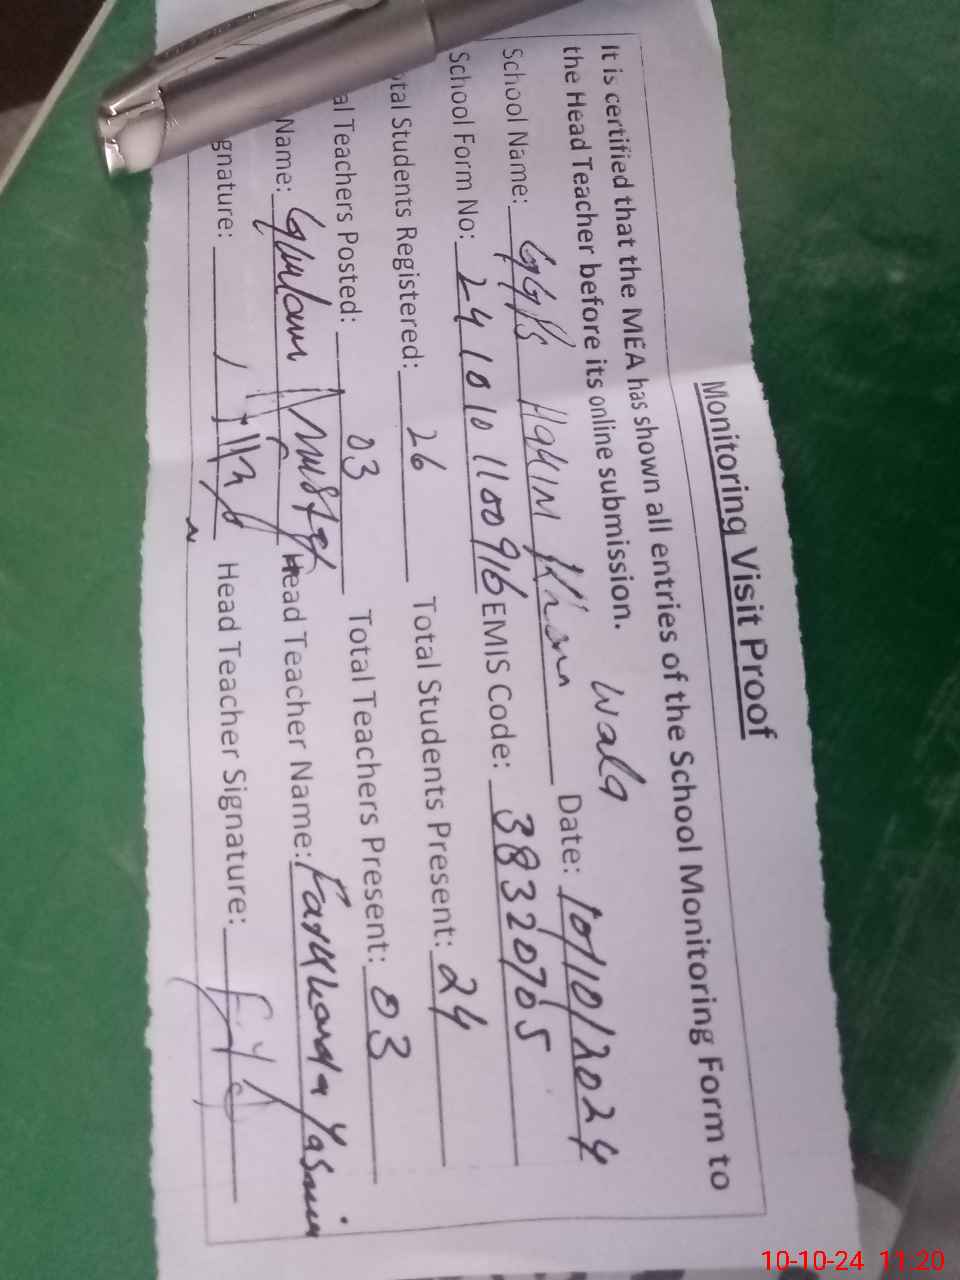 Monitoring Visit Proof
It is certified that the MEA has shown all entries of the School Monitoring Form to
the Head Teacher before its online submission.
Wala
School Name: GGPS Date: 10/10/2024
School Form No: 2410101100916 EMIS Code: 38320705
tal Students Registered: 26 Total Students Present: 24
al Teachers Posted: 03 Total Teachers Present: 03
Name: Ghulam Head Teacher Name: Yasmin
gnature: Head Teacher Signature:
10-10-24 11:20